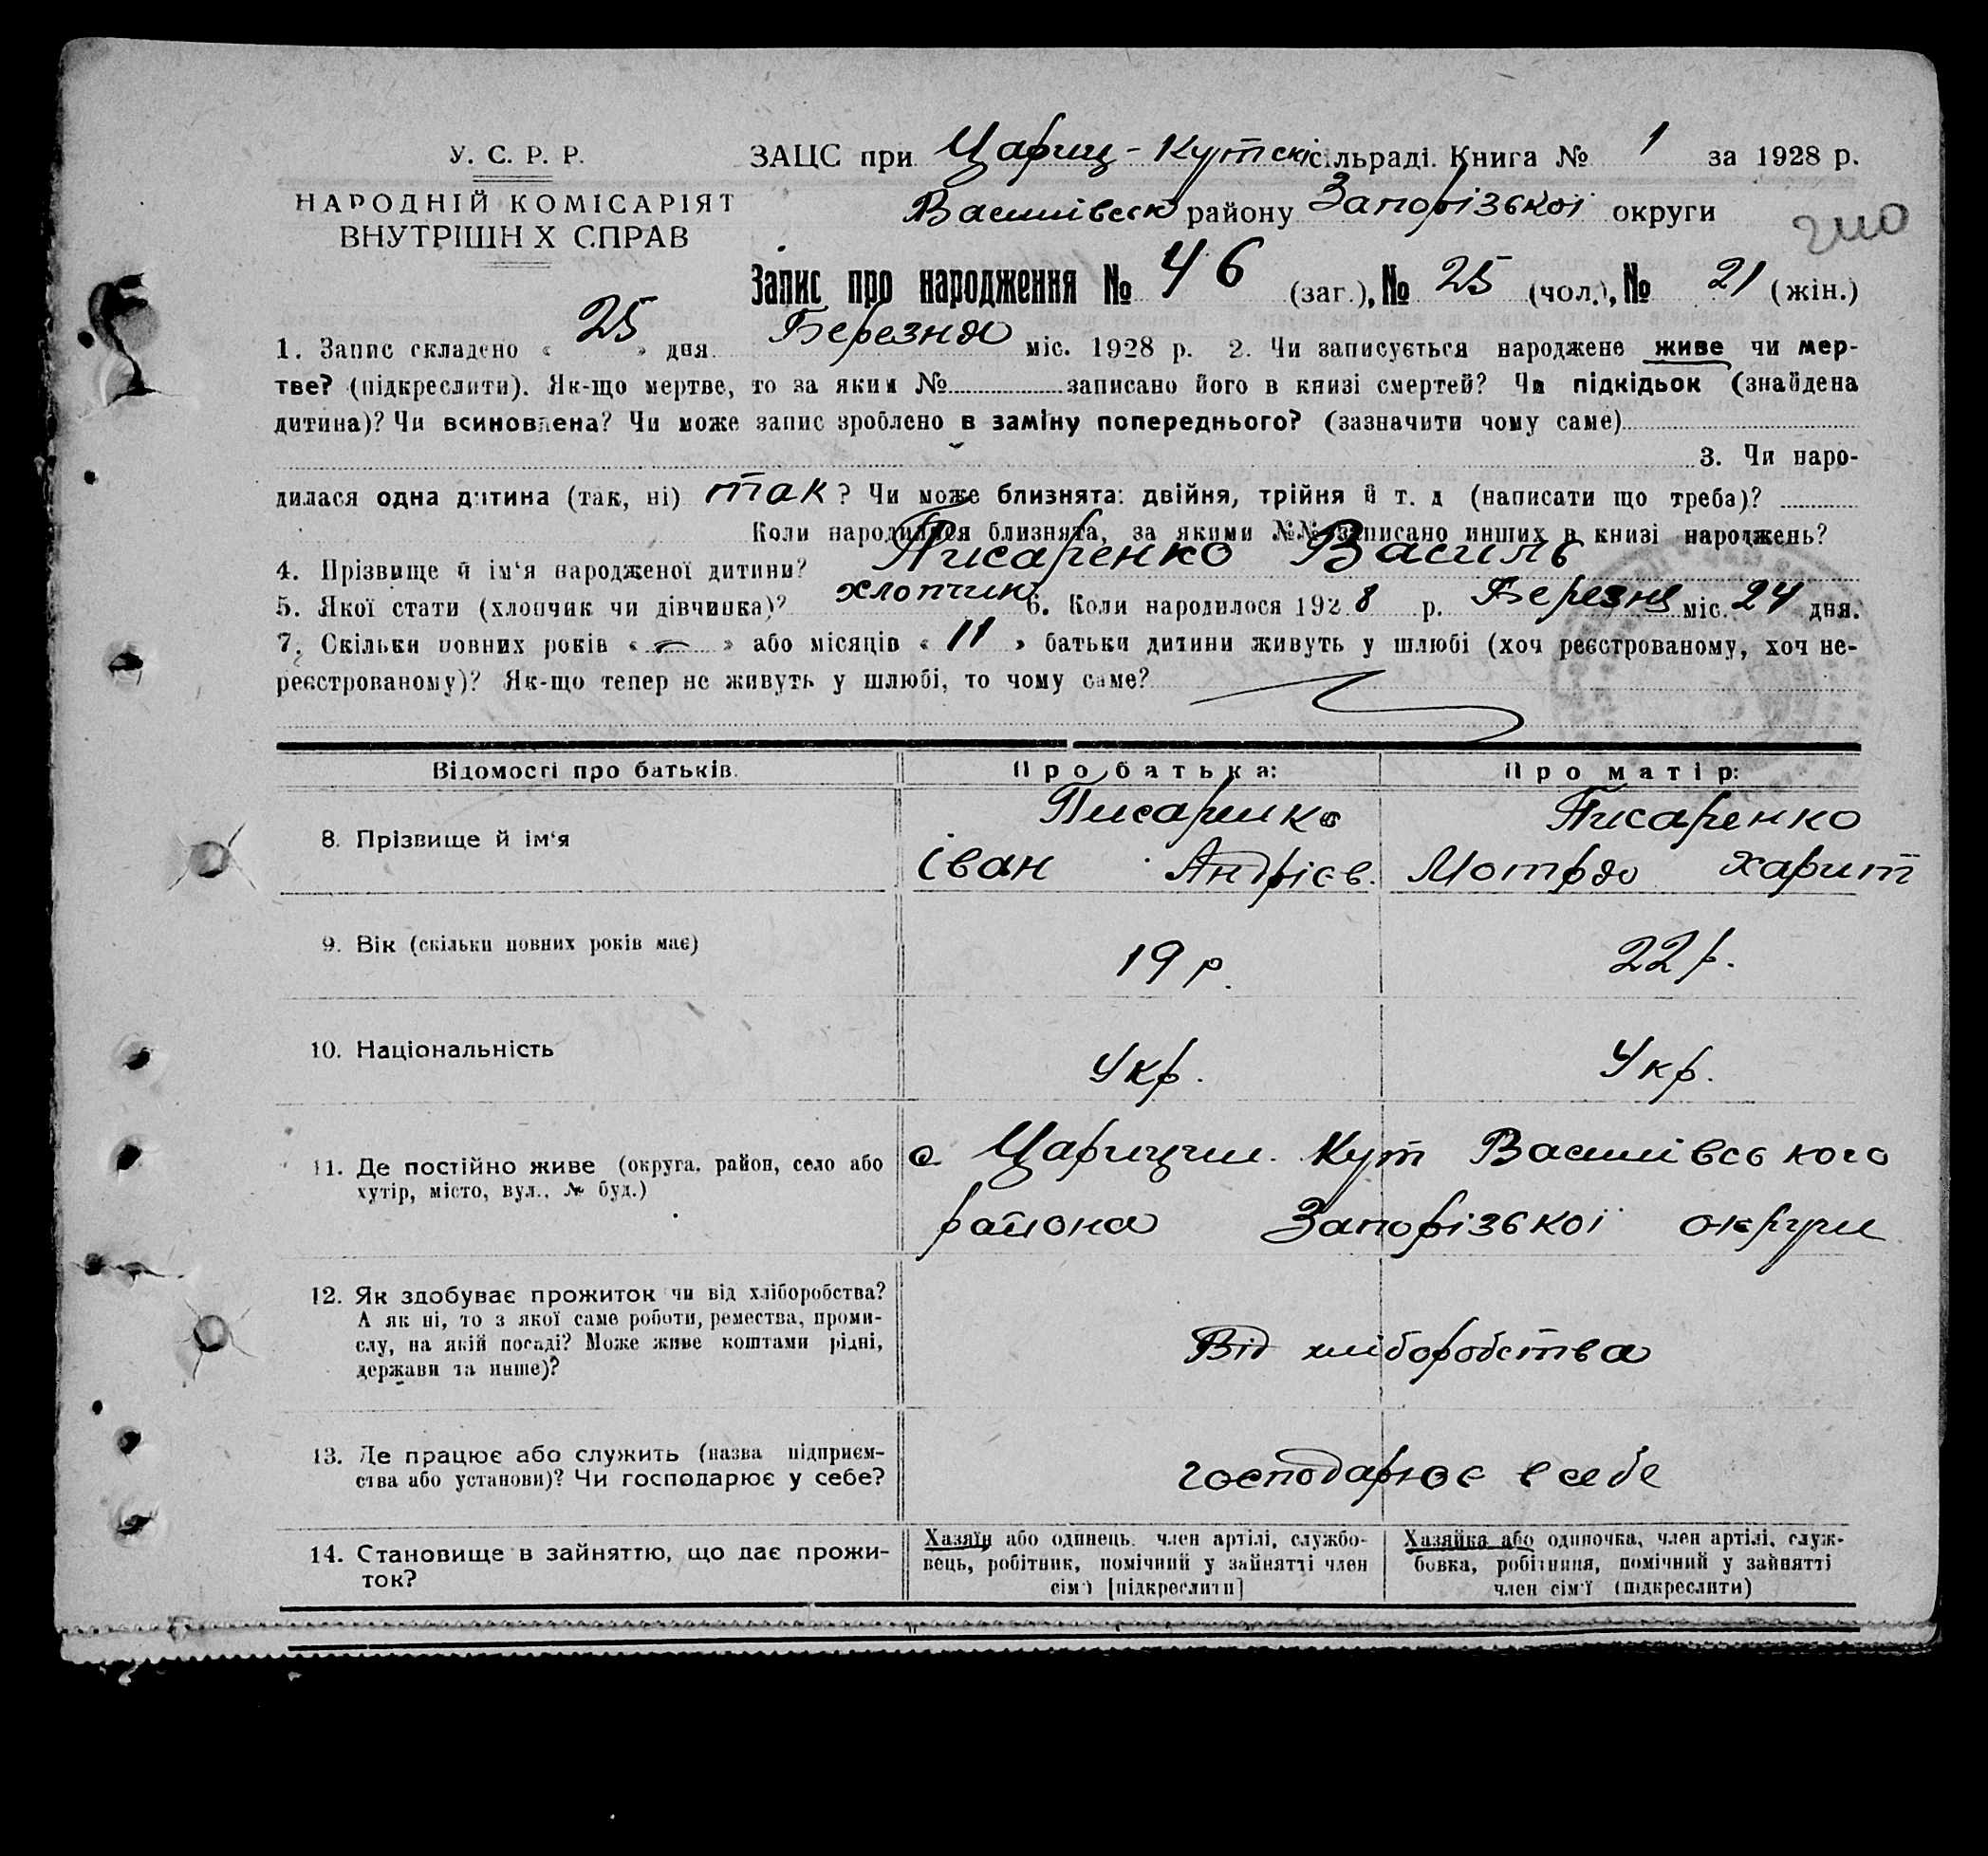 У. С. Р. Р.
НАРОДНІЙ КОМІСАРІЯТ
ВНУТРІШН Х СПРАВ
ЗАЦС при Цариц-Кутскі сільраді. Книга № 1 за 1928 р.
Василівськ району Запорізької округи
240
Запис про народження № 46 (заг.), № 25 (чол.), № 21 (жін.)
1. Запис складено « 25 » дня Березня міс. 1928 р. 2. Чи записується народжене живе чи мер-
тве? (підкреслити). Як-що мертве, то за яким № записано його в книзі смертей? Чи підкідьок (знайдена
дитина)? Чи всиновлена? Чи може запис зроблено в заміну попереднього? (зазначити чому саме)
3. Чи наро-
дилася одна дитина (так, ні) так? Чи може близнята: двійня, трійня й т. д (написати що треба)?
Коли народилися близнята, за якими №№ записано инших в книзі народжень?
4. Прізвище й ім‘я народженої дитини? Писаренко Василь
5. Якої стати (хлопчик чи дівчинка)? хлопчик 6. Коли народилося 1928 р. Березня міс. 24 дня.
7. Скільки повних років « — » або місяців « 11 » батьки дитини живуть у шлюбі (хоч реєстрованому, хоч не-
реєстрованому)? Як-що тепер не живуть у шлюбі, то чому саме?
Відомості про батьків. Про батька: Про матір:
8. Прізвище й ім‘я Писаренко Іван Андрієв. Писаренко Мотря Харит
9. Вік (скільки повних років має) 19 р. 22 р.
10. Національність Укр. Укр.
11. Де постійно живе (округа, район, село або
хутір, місто, вул., № буд.)
с. Царицин. Кут Василівського
района Запорізької округи
12. Як здобуває прожиток чи від хліборобства?
А як ні, то з якої саме роботи, ремества, проми-
слу, на якій посаді? Може живе коштами рідні,
держави та инше)?
Від хліборобства
13. Де працює або служить (назва підприєм-
ства або установи)? Чи господарює у себе?
господарює в себе
14. Становище в зайняттю, що дає прожи-
ток?
Хазяїн або одинець, член артілі, службо-
вець, робітник, помічний у зайнятті член
сім‘ї [підкреслити]
Хазяйка або одиночка, член артілі, служ-
бовка, робітниця, помічний у зайнятті
член сім‘ї (підкреслити)